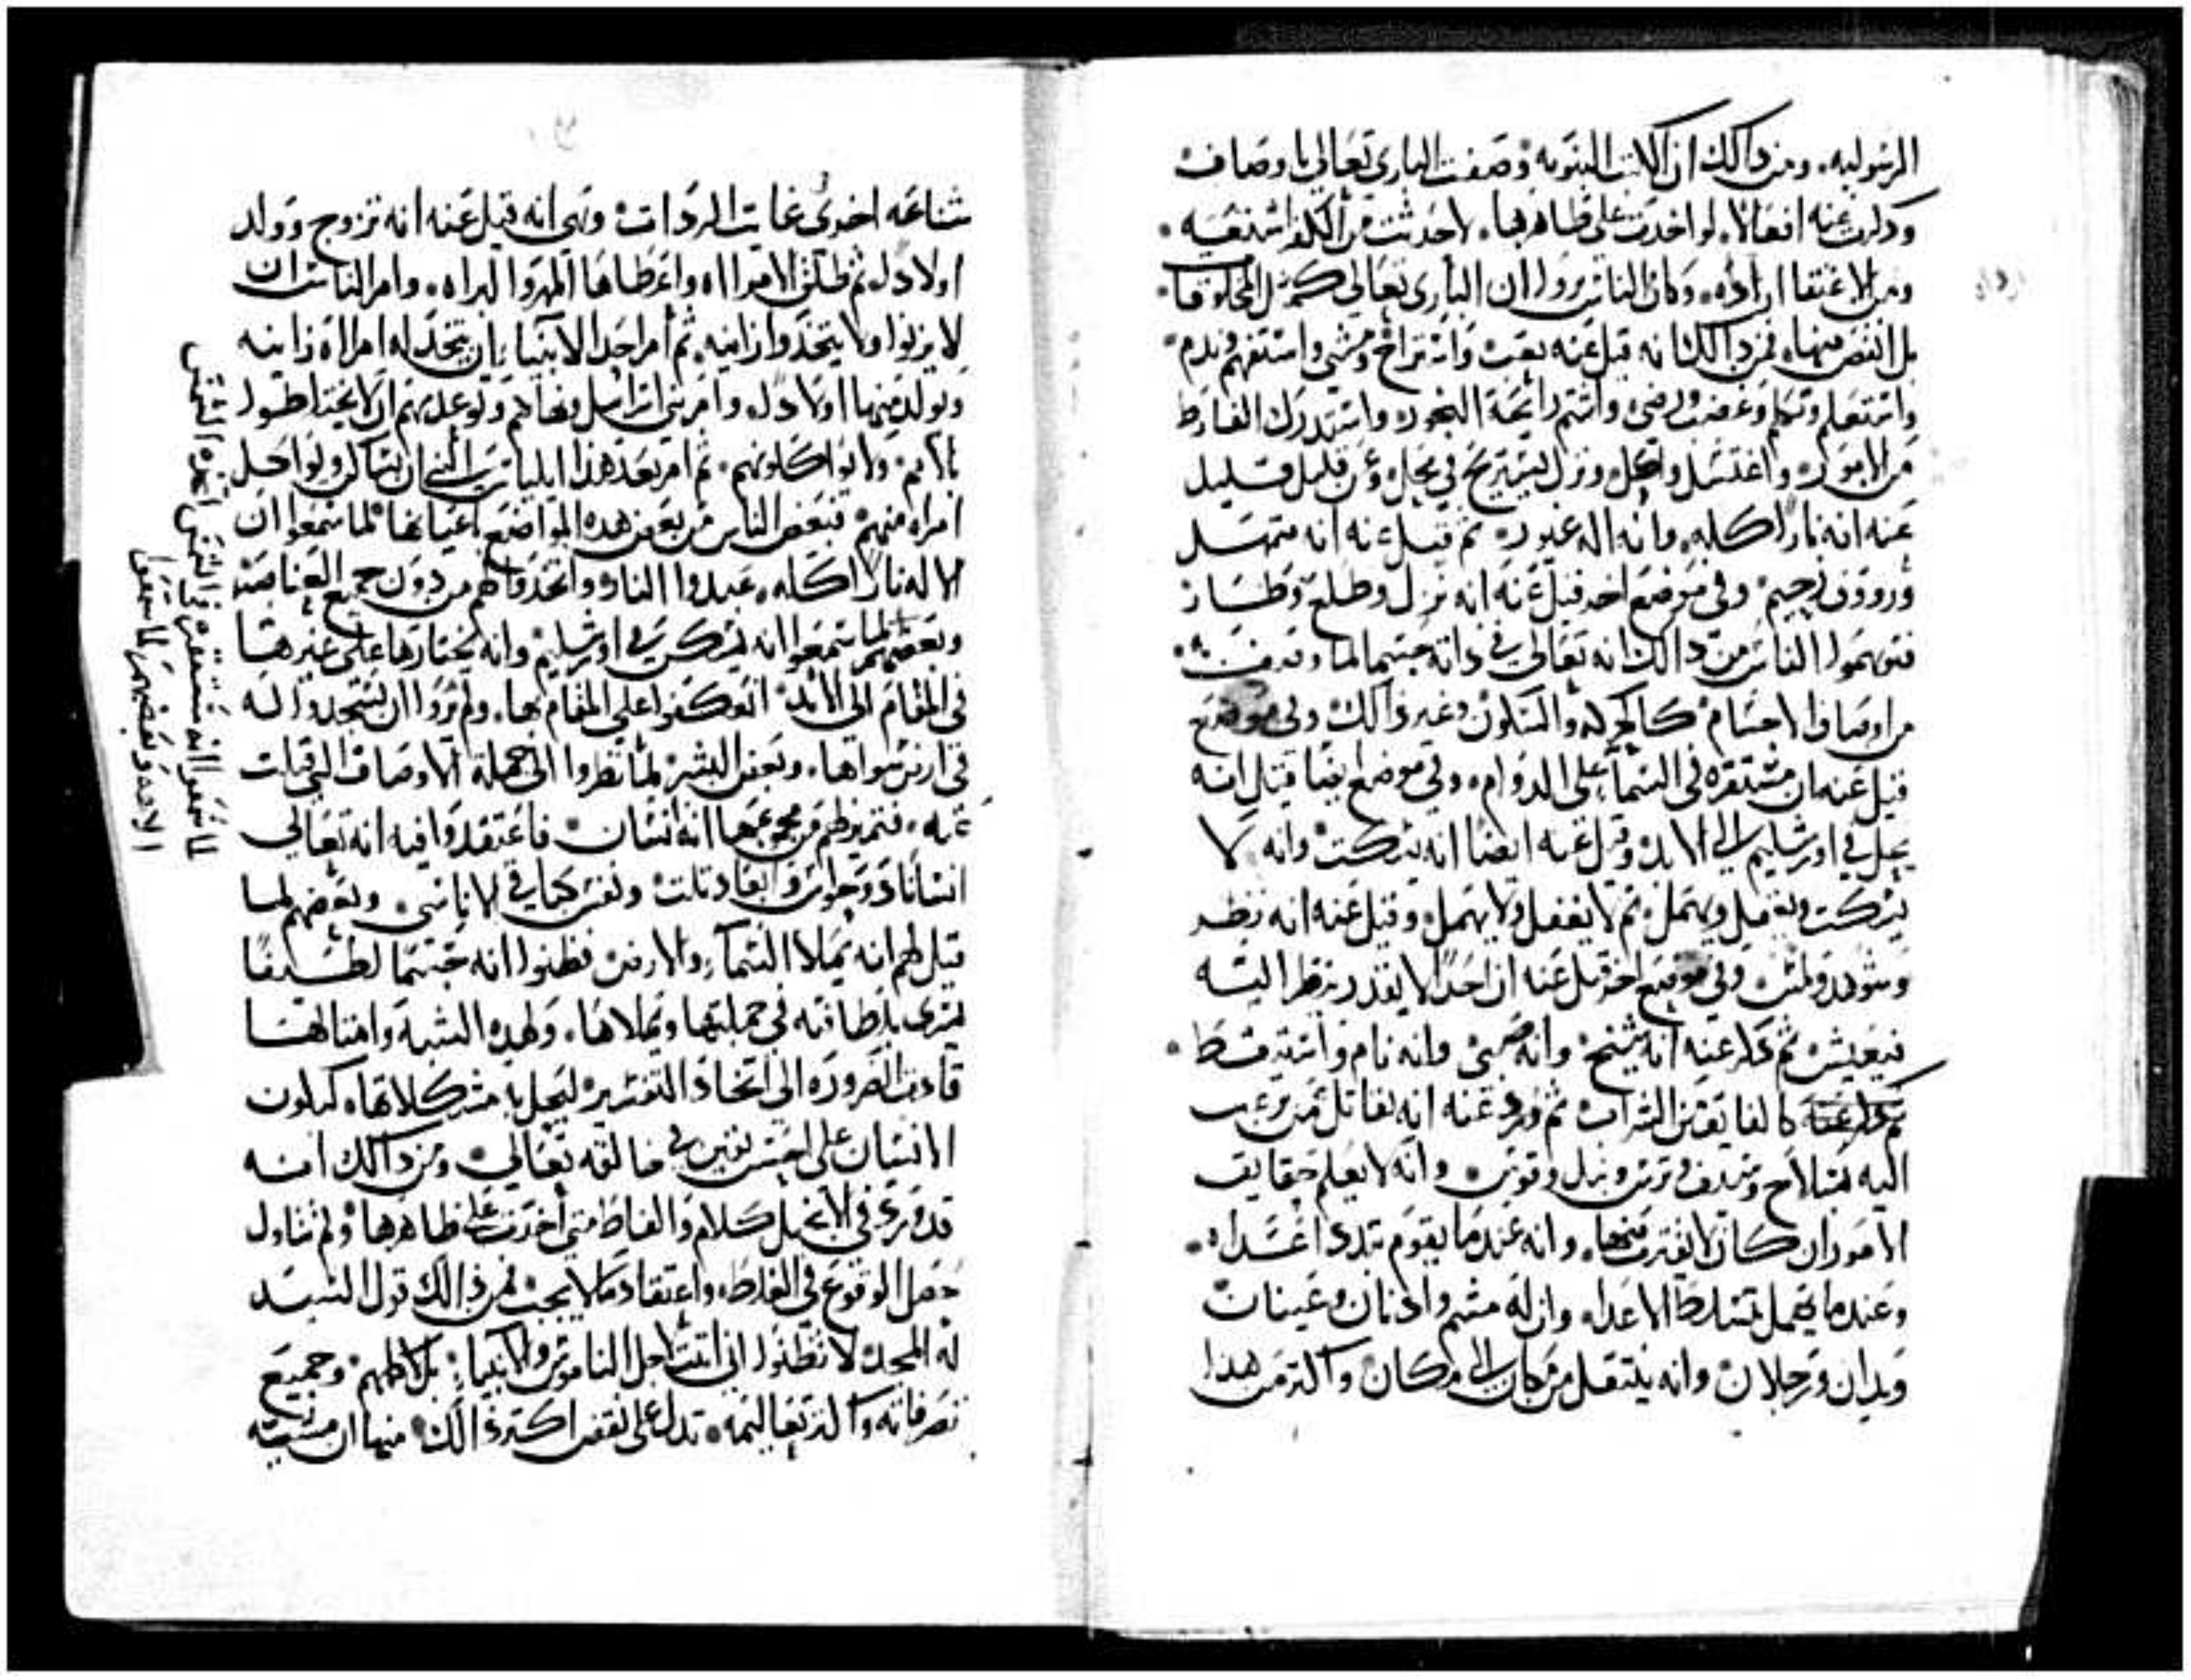 الرسوليه. ومن دالك ان الكتب النبويه وصفت الباري تعالي باوصاف
ودكرت عنه افعالا. لو اخدت على ظاهرها. لاحدثت من الكفر اشنعيه.
ومن الاعتقاد ارداه. وكان الناس يروا ان الباري تعالي كمثل المخلوقات
بل انقص منها. فمن دالك انه قيل عنه تعب واستراح ومشي واستفهم وندم
واستعلم وتكلم وغضب ورضي واشتم رائحة البخور. واستدرك الفارط
من الامور. واغتسل واكل ونزل ليستريح في محل. وعن قليل قليل
عنه انه نارا اكله. وانه اله غيور. ثم قيل عنه انه متمهل
ورووف رحيم. وفي موضع اخر قيل عنه انه نزل وطلع وطار
فتوهموا الناس من دالك انه تعالي في داته جسما لما وصف
من اوصاف الاجسام كالحركه والسكون وغير دالك وفي موضع
قيل عنه ان مستقره في السما على الدوام. وفي موضع ايضا قيل انه
يحل في اورشليم الي الابد. وقيل عنه ايضا انه يسكت وانه لا
يسكت ويغفل ويهمل. ثم لا يغفل ولا يهمل. وقيل عنه انه نظر
وشوهد ولمس وفي موضع اخر قيل عنه ان احدا لا يقدر ينظر اليه
فيعيش. ثم دكر عنه انه شيخ. وانه صبي وانه نام واستيقظ.
ثم دكر عنه كالفايق من الشراب ثم ورد عنه انه يقاتل من يرغب
اليه بسلاح وسيف وترس ونبل وقوس. وانه لا يعلم حقايق
الامور ان كان لا يقترب منها. وانه عندما يقوم تبدد اعداه.
وعندما يهمل تتسلط الاعداء. وان له مشم وادنان وعينان
ويدان ورجلان وانه ينتقل من مكان الي مكان واكثر من هدا
شناعه اخري غايت الردات وهي انه قيل عنه انه تزوج وولد
اولاد له ثم طلق الامراه واعطاها المهر والبراه. وامر الناس ان
لا يزنوا ولا يتخدوا زانيه. ثم امر احد الانبياء ان يتخد له امراه زانيه
ويولد منها اولاد له. وامر بني اسراييل ونهاهم وتوعدهم ان لا يختلطوا
بالامم ولا يواكلونهم. ثم امر بعد هدا ايلياس النبي ان يساكن ويواكل
امراه منهم. فبعض الناس من بعض هده المواضع باعيانها لما سمعوا ان
الاله نارا اكله. عبدوا النار واتخدوها لهم من دون جميع العناصر
وبعضهم لما سمعوا انه يسكن في اورشليم وانه يختارها على غيرها
في المقام الي الابد. انعكفوا علي المقام بها. ولم يروا ان يسجدوا له
في ارض سواها. وبعض البشر لما نظروا الى جملة الاوصاف التي قيلت
عنه. فتميز لهم من مجموعها انه انسان. فاعتقدوا فيه انه تعالي
انسانا دو حواس وابعاد تلت ونفس كباقي الاناسي. وبعضهم لما
قيل لهم انه يملا السما والارض فظنوا انه جسما لطيفا
يسري بلطافته في جملتها ويملاها. ولهده الشبه وامثالها
قادت الضروره الى اتخاد التفسير ليحل به مشكلاتها. كيلون
الانسان على احسن يقين في خالقه تعالي. ومن دالك انه
قد ورد في الانجيل كلام والفاظ متي اخدت على ظاهرها ولم تتاول
حصل الوقوع في الغلط. واعتقاد ما لا يجب فمن دالك قول السيد
له المجد لا تظنوا اني اتيت لاحل الناموس والانبياء. بل لاكملهم. وجميع
تصرفاته واكثر تعاليمه. تدل على نقض اكثر دالك. منها ان مسبته
لما سمعوا انه مستقره في الشمس اعبدوا الشمس